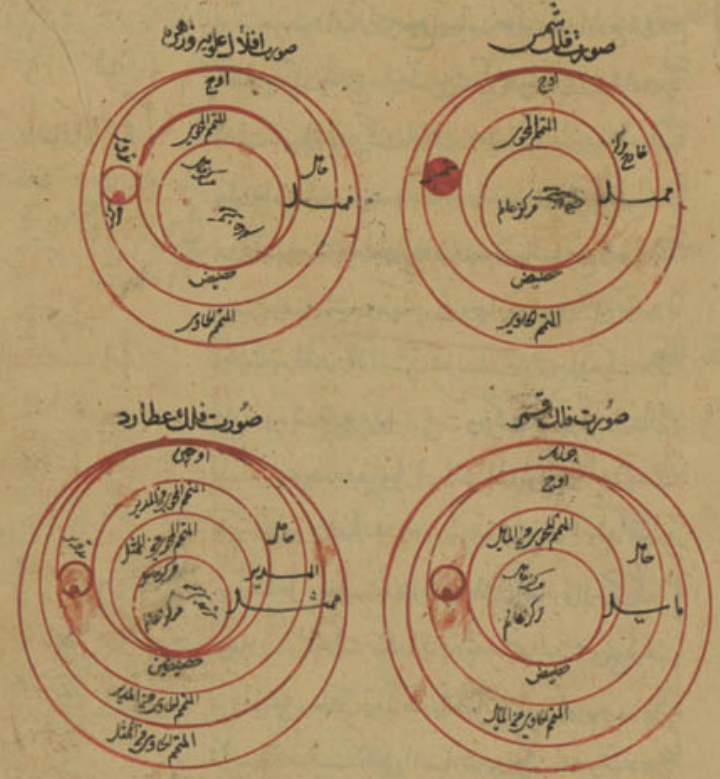 صورت فلك شمس
اوج
المتمم المحوى
خارج مركز
ممثل
شمس
مركز عالم
حضيض
المتمم الحاوى
صورت افلاك علويه وزهره
اوج
المتمم المحوى
حامل
ممثل
تدوير
حضيض
المتمم الحاوى
صورت فلك قمر
اوج
المتمم المحوى فى المايل
حامل
مايل
مركز حامل
مركز عالم
حضيض
المتمم الحاوى فى المايل
صورت فلك عطارد
اوجين
المتمم المحوى فى المدير
المتمم المحوى فى الممثل
حامل
المدير
ممثل
تدوير
مركز عالم
حضيضين
المتمم الحاوى فى المدير
المتمم الحاوى فى الممثل